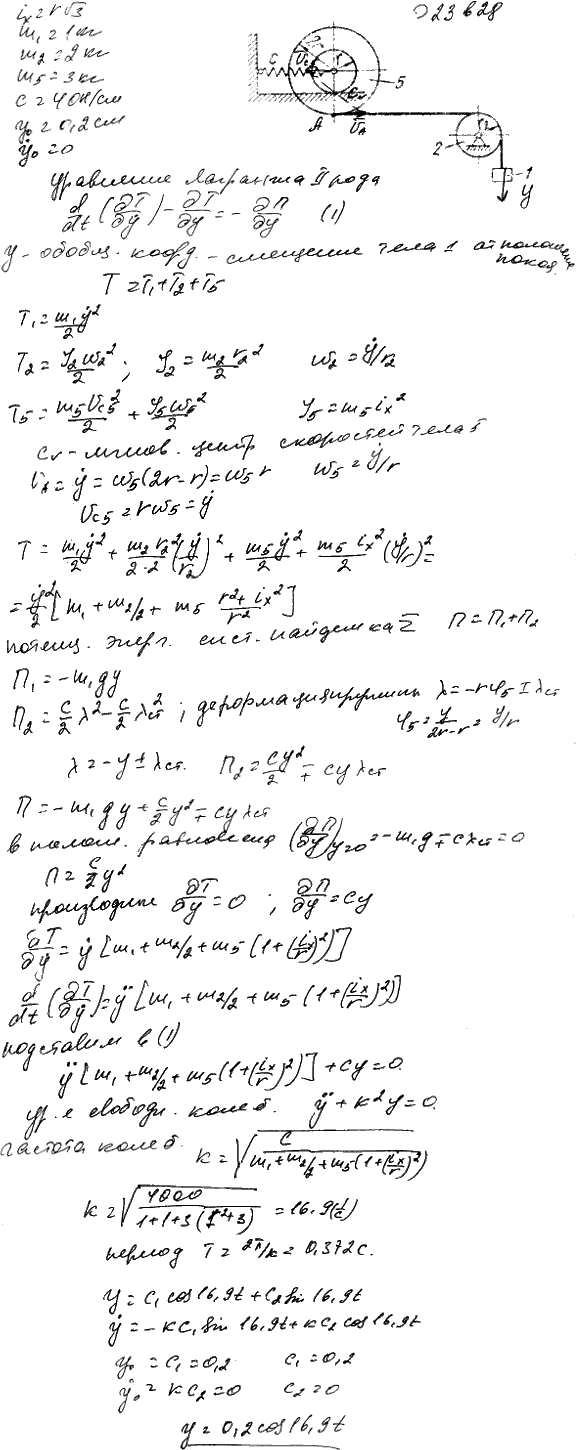 i_x = r√3
m₁ = 1 кг
m₂ = 2 кг
m₅ = 3 кг
c = 40 Н/см
y₀ = 0,2 см
ẏ₀ = 0
Э23 В28
C 5 A V_A 2 r₂ 1 y
уравнение Лагранжа II рода
d/dt (∂T/∂ẏ) - ∂T/∂y = - ∂П/∂y (1)
y - обобщ. коорд. - смещение тела 1 от положения покоя
T = T₁ + T₂ + T₅
T₁ = m₁ẏ²/2
T₂ = J₂ω₂²/2 ; J₂ = m₂r₂²/2 ω₂ = ẏ/r₂
T₅ = m₅V_C5²/2 + J₅ω₅²/2 J₅ = m₅i_x²
C_V - мгнов. центр скоростей тела 5
V_A = ẏ = ω₅(2r-r) = ω₅r ω₅ = ẏ/r
V_C5 = rω₅ = ẏ
T = m₁ẏ²/2 + m₂r₂²/2·2 (ẏ/r₂)² + m₅ẏ²/2 + m₅i_x²/2 (ẏ/r)² =
= ẏ²/2 [m₁ + m₂/2 + m₅ r²+i_x²/r²]
потенц. энерг. сист. найдем как Σ П = П₁+П₂
П₁ = -m₁gy
П₂ = c/2 λ² - c/2 λст² ; деформация пружины λ = -rφ₅ ± λст
φ₅ = y/2r-r = y/r
λ = -y ± λст. П₂ = cy²/2 ∓ cyλст
П = -m₁gy + c/2 y² ∓ cyλст
в полож. равновесия (∂П/∂y)y=0 = -m₁g ∓ cλст = 0
П = c/2 y²
производные ∂T/∂y = 0 ; ∂П/∂y = cy
∂T/∂ẏ = ẏ [m₁ + m₂/2 + m₅ (1+(i_x/r)²)]
d/dt (∂T/∂ẏ) = ÿ [m₁ + m₂/2 + m₅ (1+(i_x/r)²)]
подставим в (1)
ÿ [m₁ + m₂/2 + m₅(1+(i_x/r)²)] + cy = 0
ур-е свободн. колеб. ÿ + k²y = 0.
частота колеб. k = √c/m₁+m₂/2+m₅(1+(i_x/r)²)
k = √4000/1+1+3(1²+3) = 16.9(1/c)
период T = 2π/k = 0,372 с.
y = c₁ cos16,9t + c₂ sin 16,9t
ẏ = -kc₁ sin 16,9t + kc₂ cos16,9t
y₀ = c₁ = 0,2 c₁ = 0,2
ẏ₀ = kc₂ = 0 c₂ = 0
y = 0,2 cos16,9t